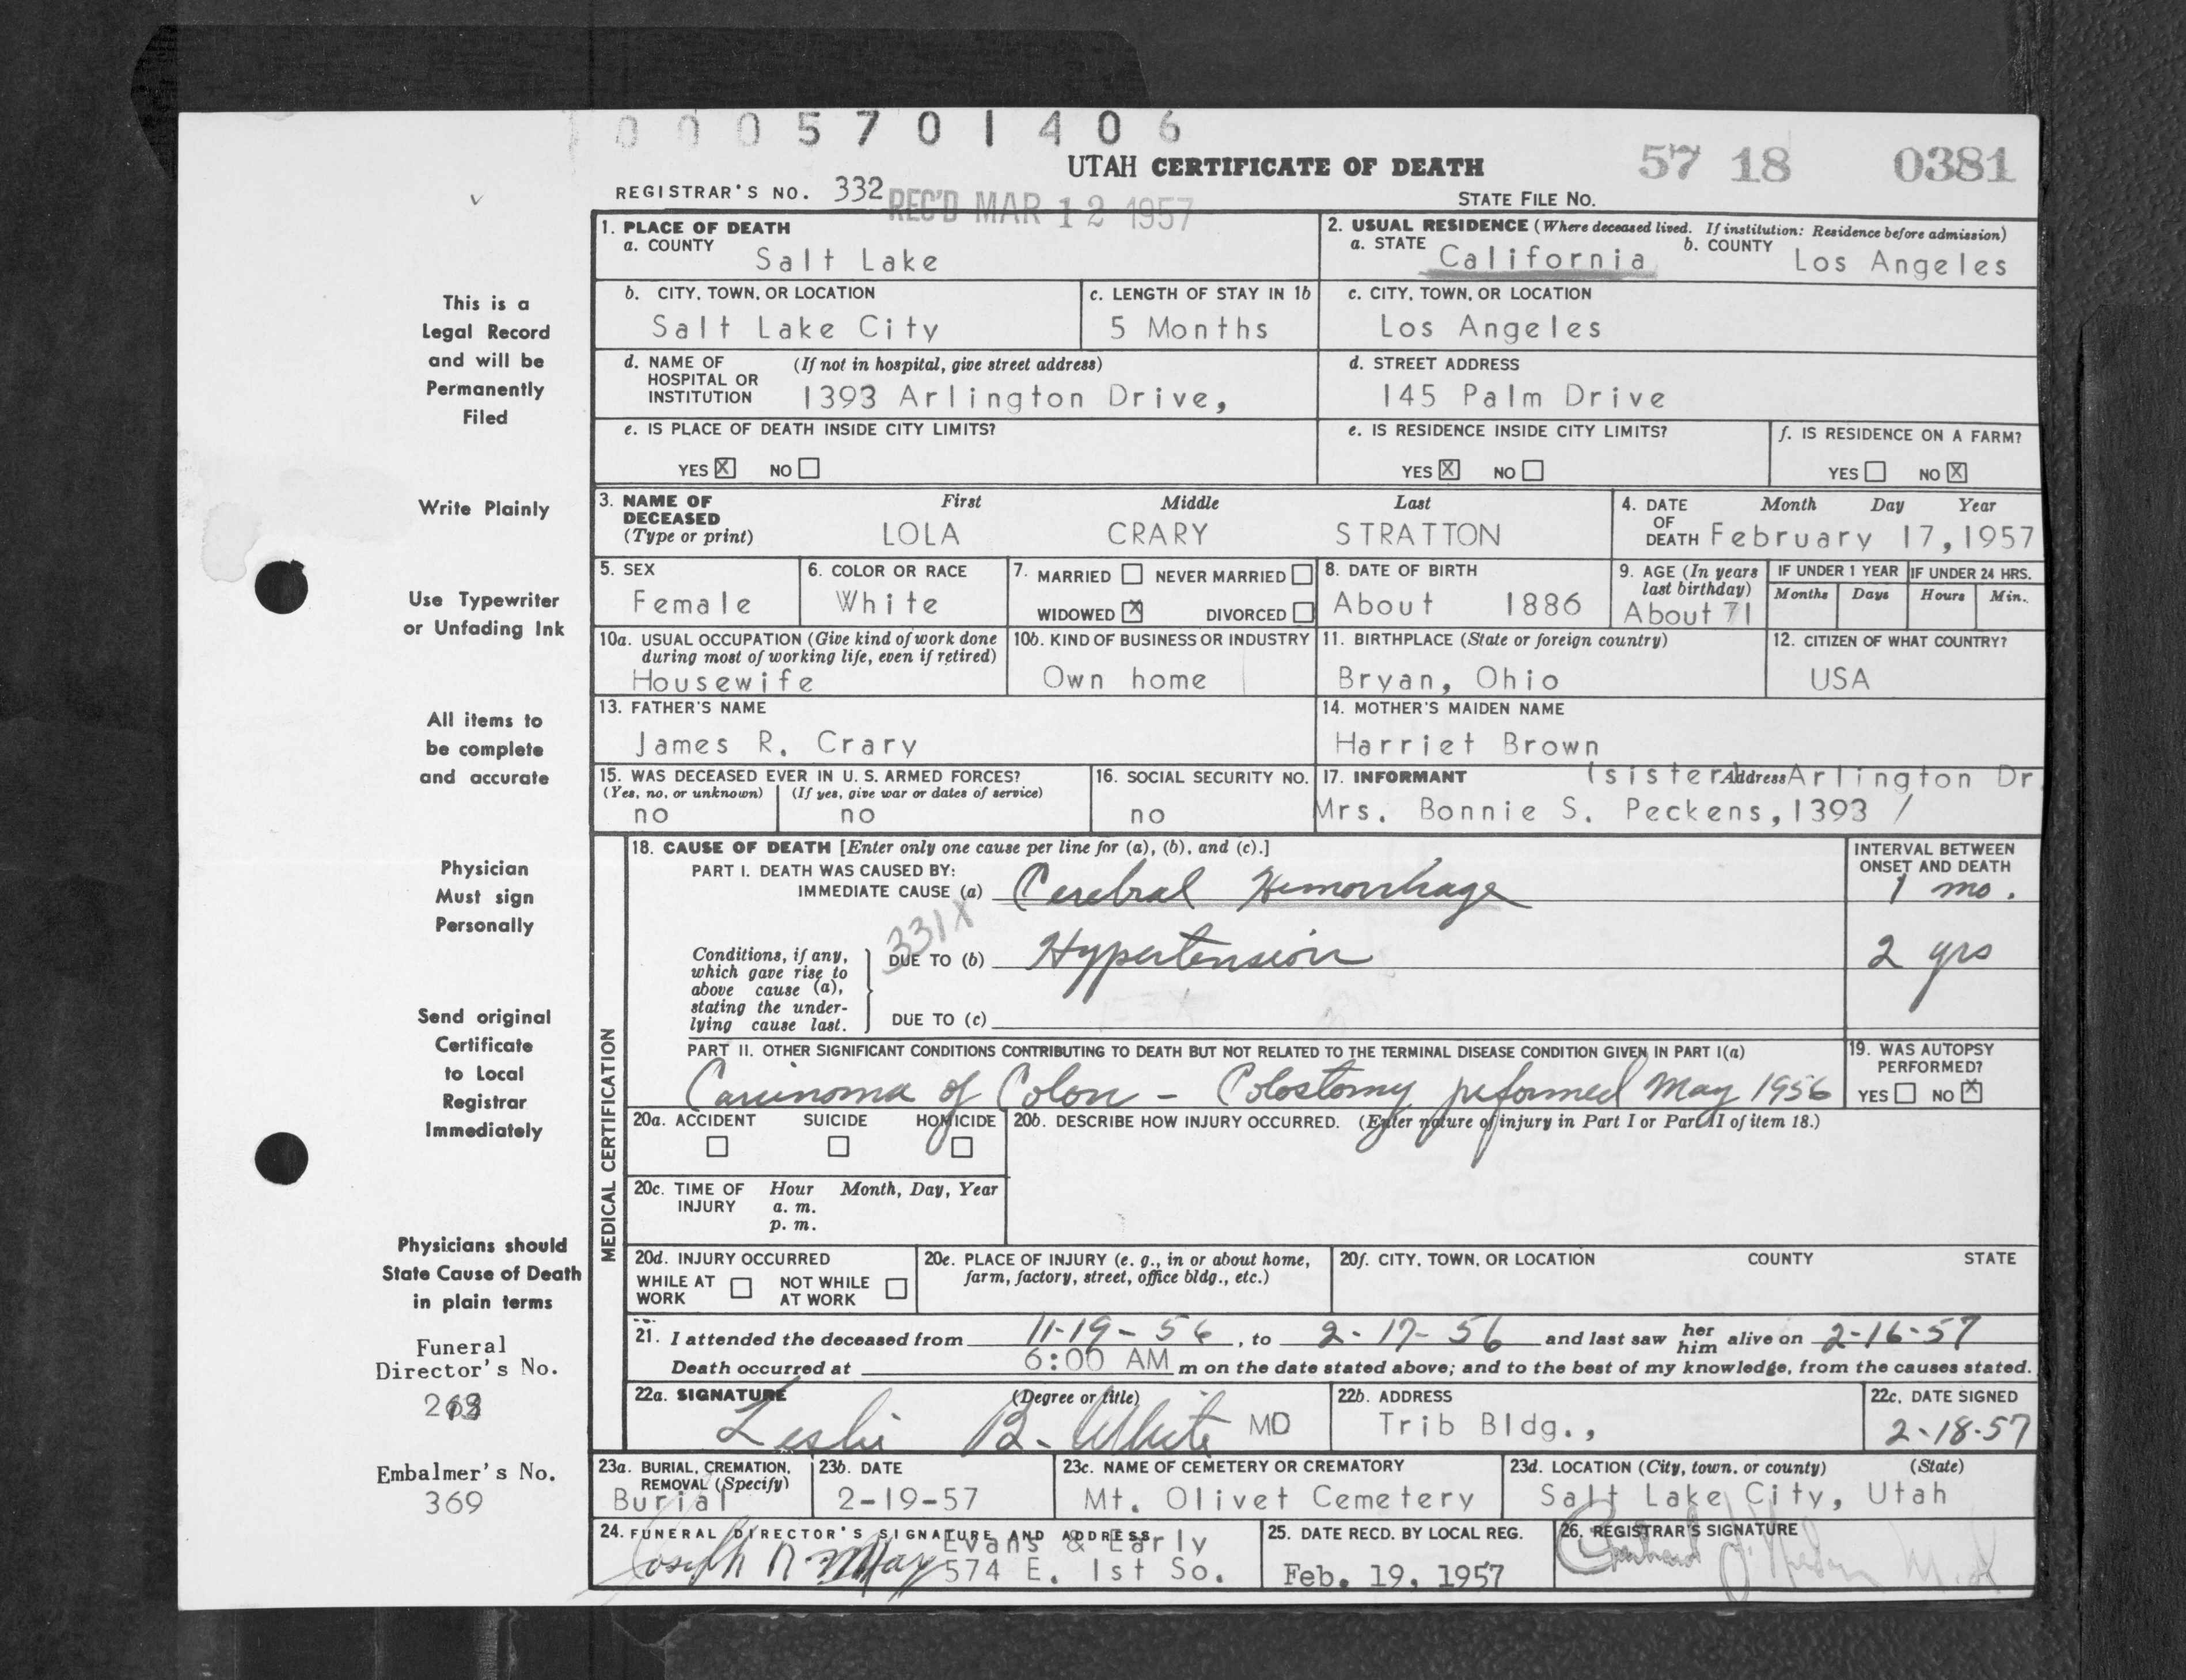 0 0 0 5 7 0 1 4 0 6
UTAH CERTIFICATE OF DEATH
57 18 0381
REGISTRAR'S NO. 332
REC'D MAR 12 1957
STATE FILE NO.
1. PLACE OF DEATH
a. COUNTY
Salt Lake
2. USUAL RESIDENCE (Where deceased lived. If institution: Residence before admission)
a. STATE California b. COUNTY Los Angeles
b. CITY, TOWN, OR LOCATION
Salt Lake City
c. LENGTH OF STAY IN 1b
5 Months
c. CITY, TOWN, OR LOCATION
Los Angeles
d. NAME OF HOSPITAL OR INSTITUTION (If not in hospital, give street address)
1393 Arlington Drive,
d. STREET ADDRESS
145 Palm Drive
e. IS PLACE OF DEATH INSIDE CITY LIMITS?
YES X NO
e. IS RESIDENCE INSIDE CITY LIMITS?
YES X NO
f. IS RESIDENCE ON A FARM?
YES NO X
3. NAME OF DECEASED (Type or print)
First Middle Last
LOLA CRARY STRATTON
4. DATE OF DEATH Month Day Year
February 17,1957
5. SEX
Female
6. COLOR OR RACE
White
7. MARRIED NEVER MARRIED
WIDOWED X DIVORCED
8. DATE OF BIRTH
About 1886
9. AGE (In years last birthday)
About 71
IF UNDER 1 YEAR
Months Days
IF UNDER 24 HRS.
Hours Min.
10a. USUAL OCCUPATION (Give kind of work done during most of working life, even if retired)
Housewife
10b. KIND OF BUSINESS OR INDUSTRY
Own home
11. BIRTHPLACE (State or foreign country)
Bryan, Ohio
12. CITIZEN OF WHAT COUNTRY?
USA
13. FATHER'S NAME
James R. Crary
14. MOTHER'S MAIDEN NAME
Harriet Brown
15. WAS DECEASED EVER IN U. S. ARMED FORCES?
(Yes, no, or unknown) (If yes, give war or dates of service)
no no
16. SOCIAL SECURITY NO.
no
17. INFORMANT (sister) Address Arlington Dr
Mrs. Bonnie S. Peckens, 1393 /
MEDICAL CERTIFICATION
18. CAUSE OF DEATH [Enter only one cause per line for (a), (b), and (c).]
PART I. DEATH WAS CAUSED BY:
IMMEDIATE CAUSE (a) Cerebral Hemorrhage
INTERVAL BETWEEN ONSET AND DEATH
1 mo.
331X
Conditions, if any, which gave rise to above cause (a), stating the underlying cause last.
DUE TO (b) Hypertension
2 yrs
DUE TO (c)
PART II. OTHER SIGNIFICANT CONDITIONS CONTRIBUTING TO DEATH BUT NOT RELATED TO THE TERMINAL DISEASE CONDITION GIVEN IN PART I(a)
Carcinoma of Colon - Colostomy peformed May 1956
19. WAS AUTOPSY PERFORMED?
YES NO X
20a. ACCIDENT SUICIDE HOMICIDE
20b. DESCRIBE HOW INJURY OCCURRED. (Enter nature of injury in Part I or Part II of item 18.)
20c. TIME OF INJURY Hour Month, Day, Year
a. m.
p. m.
20d. INJURY OCCURRED
WHILE AT WORK NOT WHILE AT WORK
20e. PLACE OF INJURY (e. g., in or about home, farm, factory, street, office bldg., etc.)
20f. CITY, TOWN, OR LOCATION COUNTY STATE
21. I attended the deceased from 11-19-56, to 2-17-56 and last saw her him alive on 2-16-57
Death occurred at 6:00 AM m on the date stated above; and to the best of my knowledge, from the causes stated.
22a. SIGNATURE (Degree or title)
Leslie B. White MD
22b. ADDRESS
Trib Bldg.,
22c. DATE SIGNED
2-18-57
23a. BURIAL, CREMATION, REMOVAL (Specify)
Burial
23b. DATE
2-19-57
23c. NAME OF CEMETERY OR CREMATORY
Mt. Olivet Cemetery
23d. LOCATION (City, town, or county) (State)
Salt Lake City, Utah
24. FUNERAL DIRECTOR'S SIGNATURE AND ADDRESS
Evans & Early
574 E. 1st So.
25. DATE RECD. BY LOCAL REG.
Feb. 19, 1957
26. REGISTRAR'S SIGNATURE
This is a
Legal Record
and will be
Permanently
Filed
Write Plainly
Use Typewriter
or Unfading Ink
All items to
be complete
and accurate
Physician
Must sign
Personally
Send original
Certificate
to Local
Registrar
Immediately
Physicians should
State Cause of Death
in plain terms
Funeral
Director's No.
Embalmer's No.
369